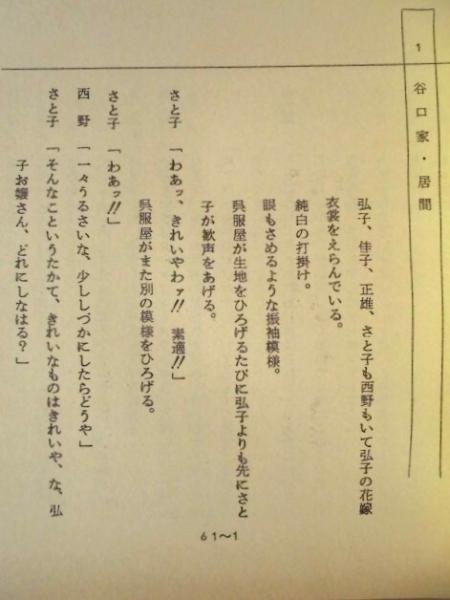 1
谷口家・居間
弘子、佳子、正雄、さと子も西野もいて弘子の花嫁
衣裳をえらんでいる。
純白の打掛け。
眼もさめるような振袖模様。
呉服屋が生地をひろげるたびに弘子よりも先にさと
子が歓声をあげる。
さと子「わあッ、きれいやわァ!! 素適!!」
呉服屋がまた別の模様をひろげる。
さと子「わあッ!!」
西野「一々うるさいな、少ししづかにしたらどうや」
さと子「そんなこというたかて、きれいなものはきれいや、な、弘
子お嬢さん、どれにしなはる?」
61〜1